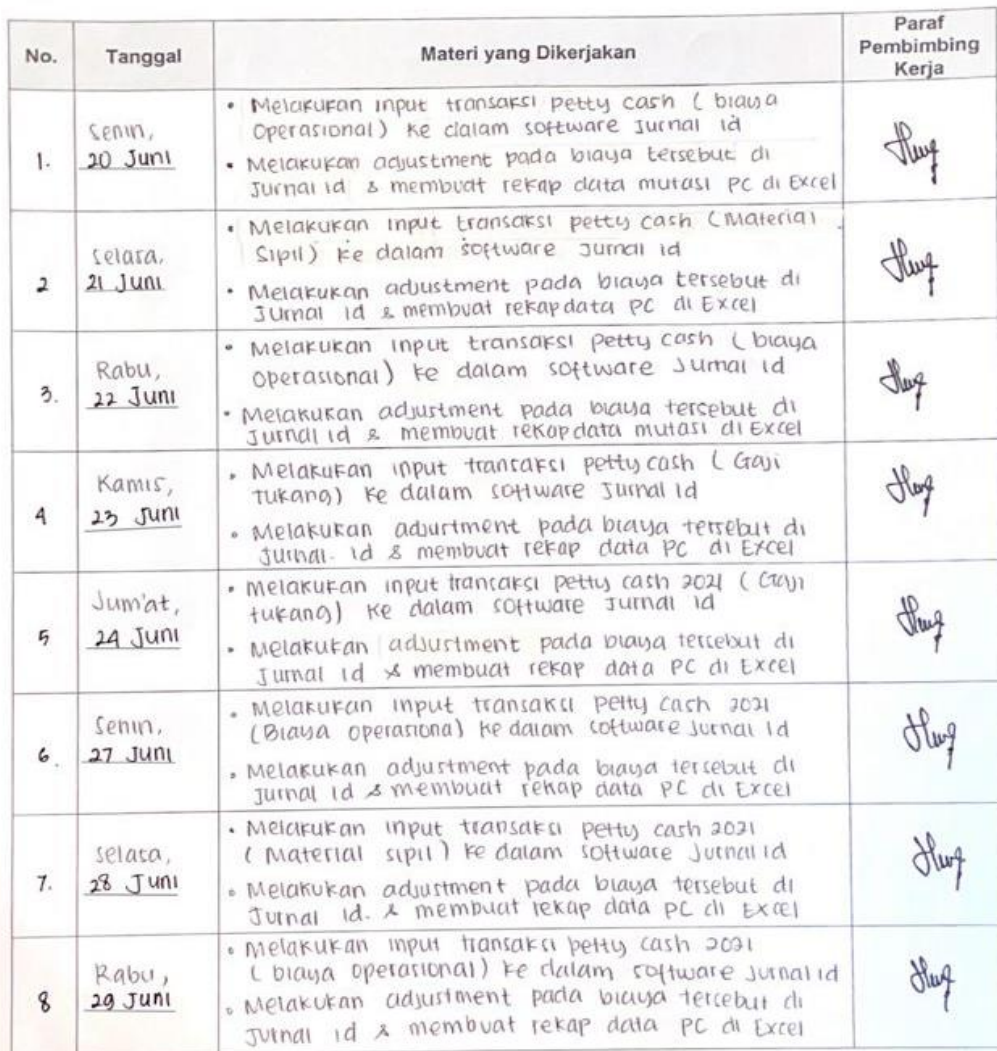 No.
Tanggal
Materi yang Dikerjakan
Paraf
Pembimbing
Kerja
1.
Senin,
20 Juni
• Melakukan input transaksi petty cash ( biaya
Operasional) ke dalam software Jurnal id
• Melakukan adjustment pada biaya tersebut di
Jurnal id & membuat rekap data mutasi PC di Excel
2
Selasa,
21 Juni
• Melakukan input transaksi petty cash (Material
Sipil) ke dalam software Jurnal id
• Melakukan adjustment pada biaya tersebut di
Jurnal id & membuat rekap data PC di Excel
3.
Rabu,
22 Juni
• Melakukan input transaksi petty cash ( biaya
Operasional) ke dalam software Jurnal id
• Melakukan adjustment pada biaya tersebut di
Jurnal id & membuat rekap data mutasi di Excel
4
Kamis,
23 Juni
• Melakukan input transaksi petty cash ( Gaji
Tukang) ke dalam software Jurnal id
• Melakukan adjustment pada biaya tersebut di
Jurnal. id & membuat rekap data PC di Excel
5
Jum'at,
24 Juni
• Melakukan input transaksi petty cash 2021 ( Gaji
tukang) ke dalam software Jurnal id
• Melakukan adjustment pada biaya tersebut di
Jurnal id & membuat rekap data PC di Excel
6.
Senin,
27 Juni
• Melakukan input transaksi petty cash 2021
(Biaya operasiona) ke dalam software Jurnal Id
• Melakukan adjustment pada biaya tersebut di
Jurnal id & membuat rekap data PC di Excel
7.
Selasa,
28 Juni
• Melakukan input transaksi petty cash 2021
( Material sipil ) ke dalam software Jurnal id
• Melakukan adjustment pada biaya tersebut di
Jurnal id. & membuat rekap data PC di Excel
8
Rabu,
29 Juni
• Melakukan input transaksi petty cash 2021
( biaya operasional) ke dalam software Jurnal id
• Melakukan adjustment pada biaya tersebut di
Jurnal id & membuat rekap data PC di Excel